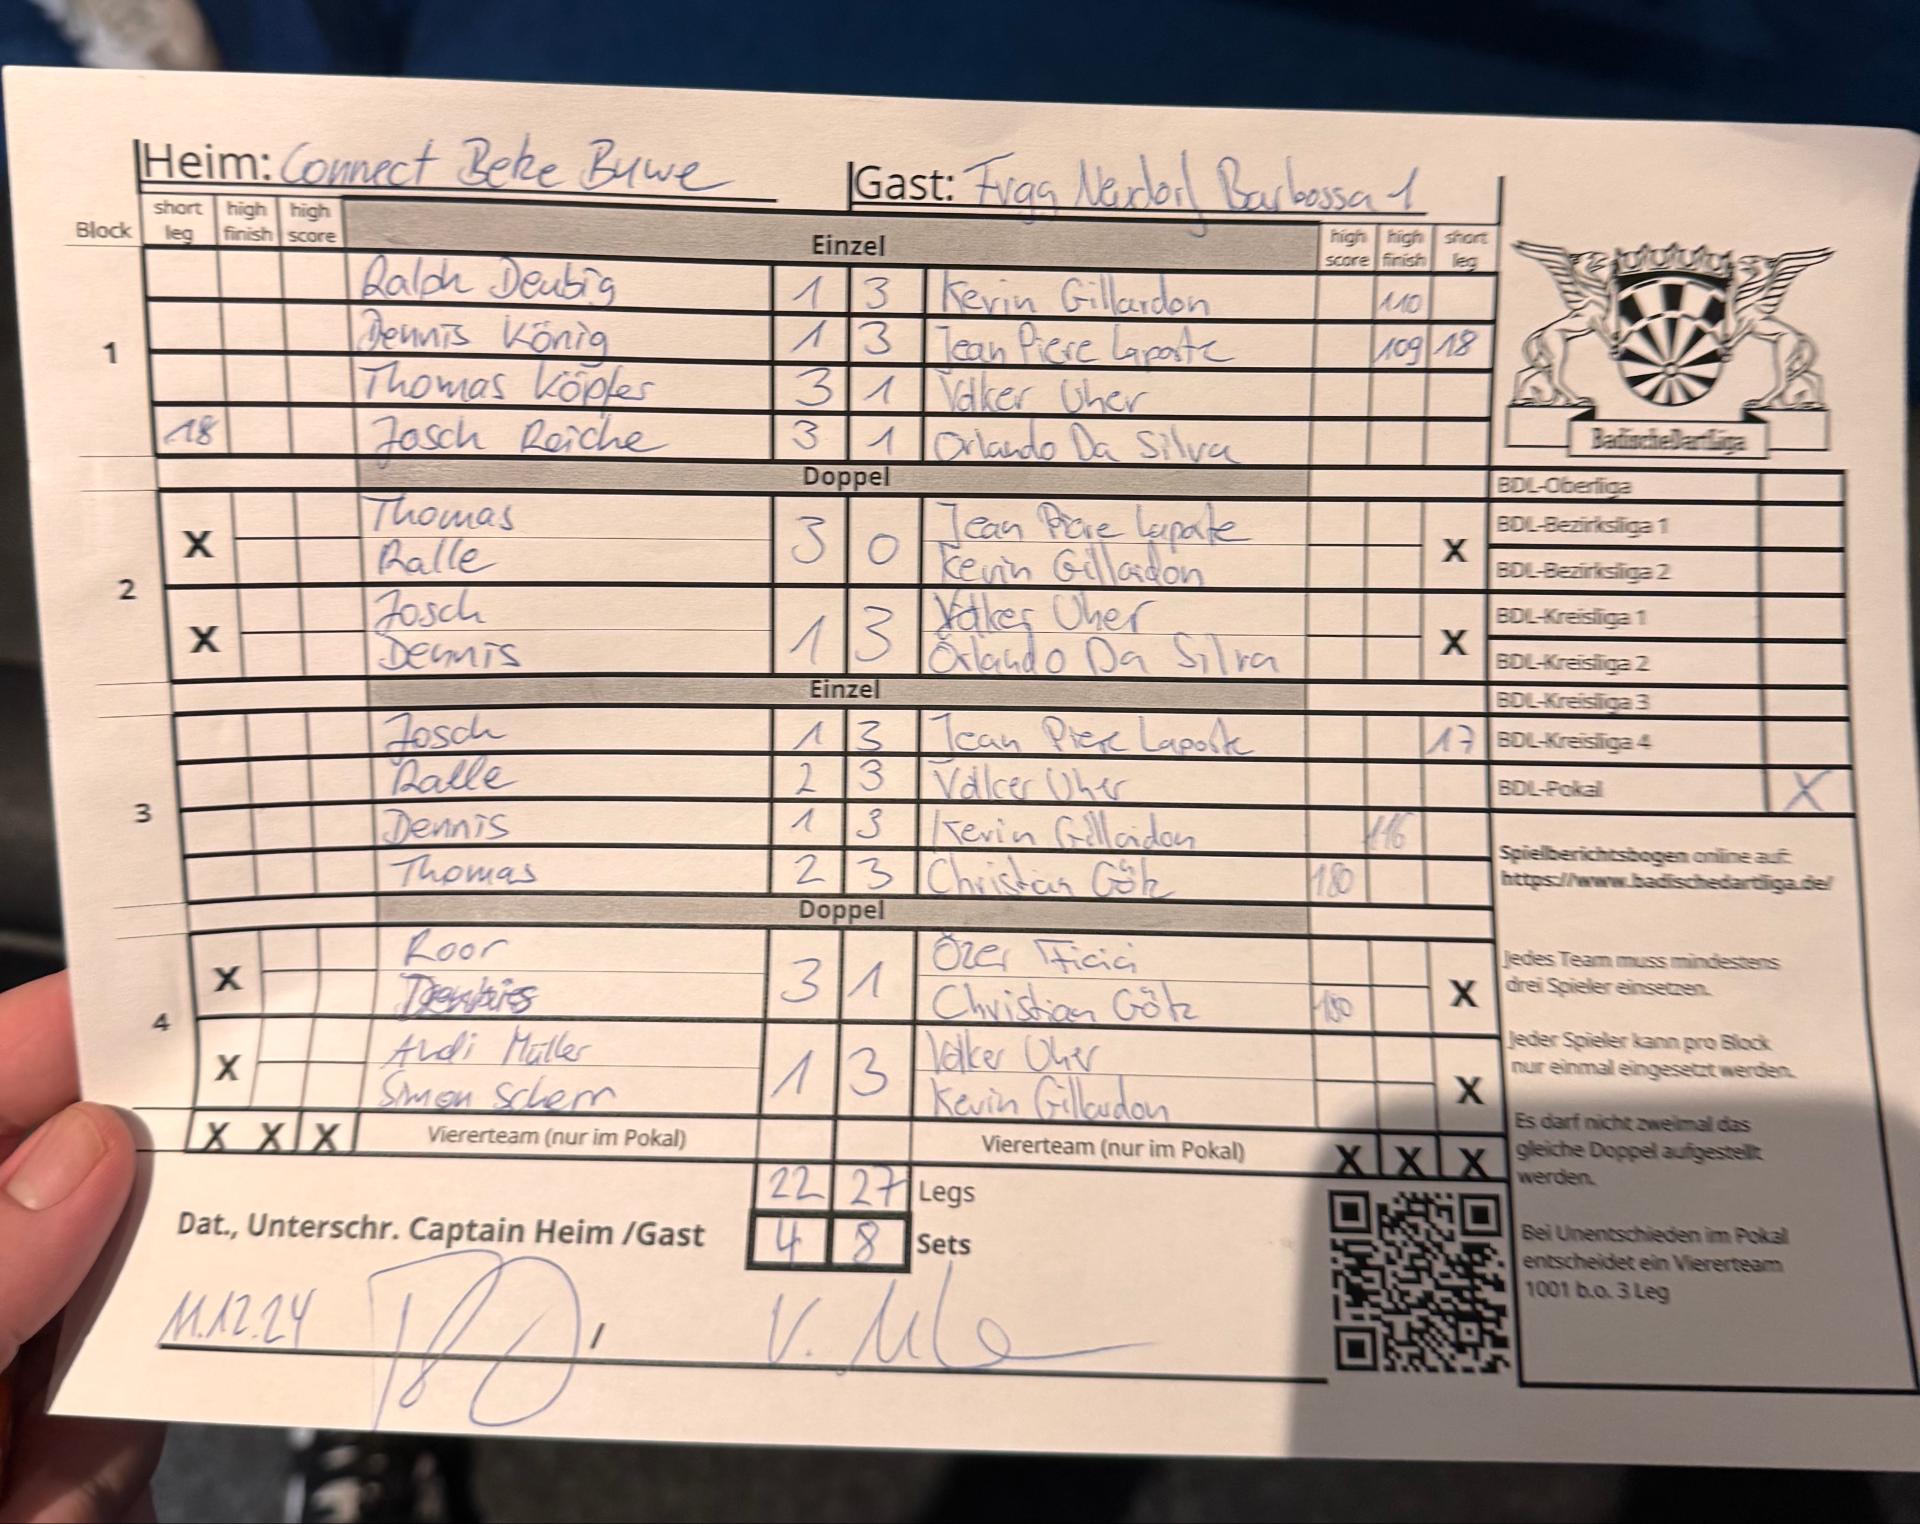 Heim: Connect Beke Buwe Gast: Fvgg Neudorf Barbossa 1
Block short leg high finish high score Einzel high score high finish short leg
1
Ralph Deubig 1 3 Kevin Gillardon 110
Dennis König 1 3 Jean Piere Laporte 109 18
Thomas Köpfer 3 1 Volker Uher
18 Josch Reiche 3 1 Orlando Da Silva
BadischeDartLiga
Doppel
2
X Thomas 3 0 Jean Piere Laporte X
Ralle Kevin Gillardon
X Josch 1 3 Volker Uher X
Dennis Orlando Da Silva
Einzel
3
Josch 1 3 Jean Piere Laporte 17
Ralle 2 3 Volker Uher
Dennis 1 3 Kevin Gillardon 116
Thomas 2 3 Christian Götz 180
Doppel
4
X Roor 3 1 Özer Ificici X
Christian Götz 180
X Andi Müller 1 3 Volker Uher X
Simon Scherr Kevin Gillardon
X X X Viererteam (nur im Pokal) Viererteam (nur im Pokal) X X X
22 27 Legs
4 8 Sets
Dat., Unterschr. Captain Heim /Gast
11.12.24 /
BDL-Oberliga
BDL-Bezirksliga 1
BDL-Bezirksliga 2
BDL-Kreisliga 1
BDL-Kreisliga 2
BDL-Kreisliga 3
BDL-Kreisliga 4
BDL-Pokal X
Spielberichtsbogen online auf:
https://www.badischedartliga.de/
Jedes Team muss mindestens
drei Spieler einsetzen.
Jeder Spieler kann pro Block
nur einmal eingesetzt werden.
Es darf nicht zweimal das
gleiche Doppel aufgestellt
werden.
Bei Unentschieden im Pokal
entscheidet ein Viererteam
1001 b.o. 3 Leg